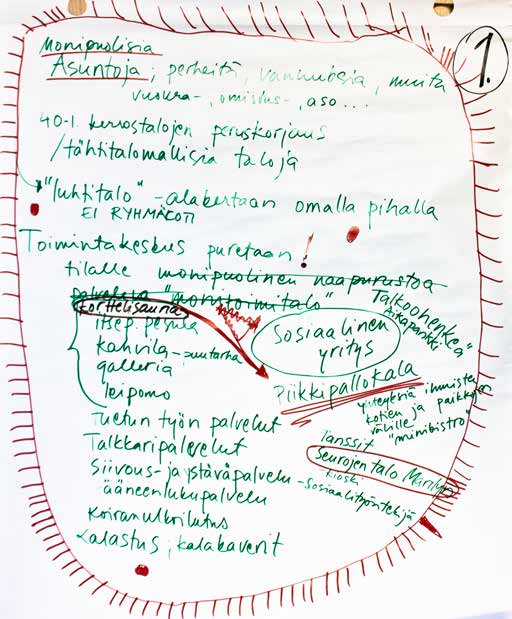 1.
Monipuolisia
Asuntoja; perheitä, vanhuksia, muita
vuokra-, omistus-, aso...
40-l. kerrostalojen peruskorjaus
/tähtitalomallisia taloja
"luhtitalo" - alakertaan omalla pihalla
EI RYHMÄKOTI
Toimintakeskus puretaan!
tilalle monipuolinen naapurustoa
palveleva "monitoimitalo"
Talkoohenkeä
Aikapankki
Korttelisauna
itsep. pesula
kahvila - puutarha
galleria
leipomo
Sosiaalinen
yritys
Piikkipallokala
yhteyksiä ihmisten
kotien ja paikkojen
välille "minibistro"
Tuetun työn palvelut
Tanssit
Talkkaripalvelut
Seurojentalo
kioski
Siivous- ja ystäväpalvelu - sosiaalityöntekijä
ääneenlukupalvelu
Koiranulkoilutus
Kalastus; kalakaverit